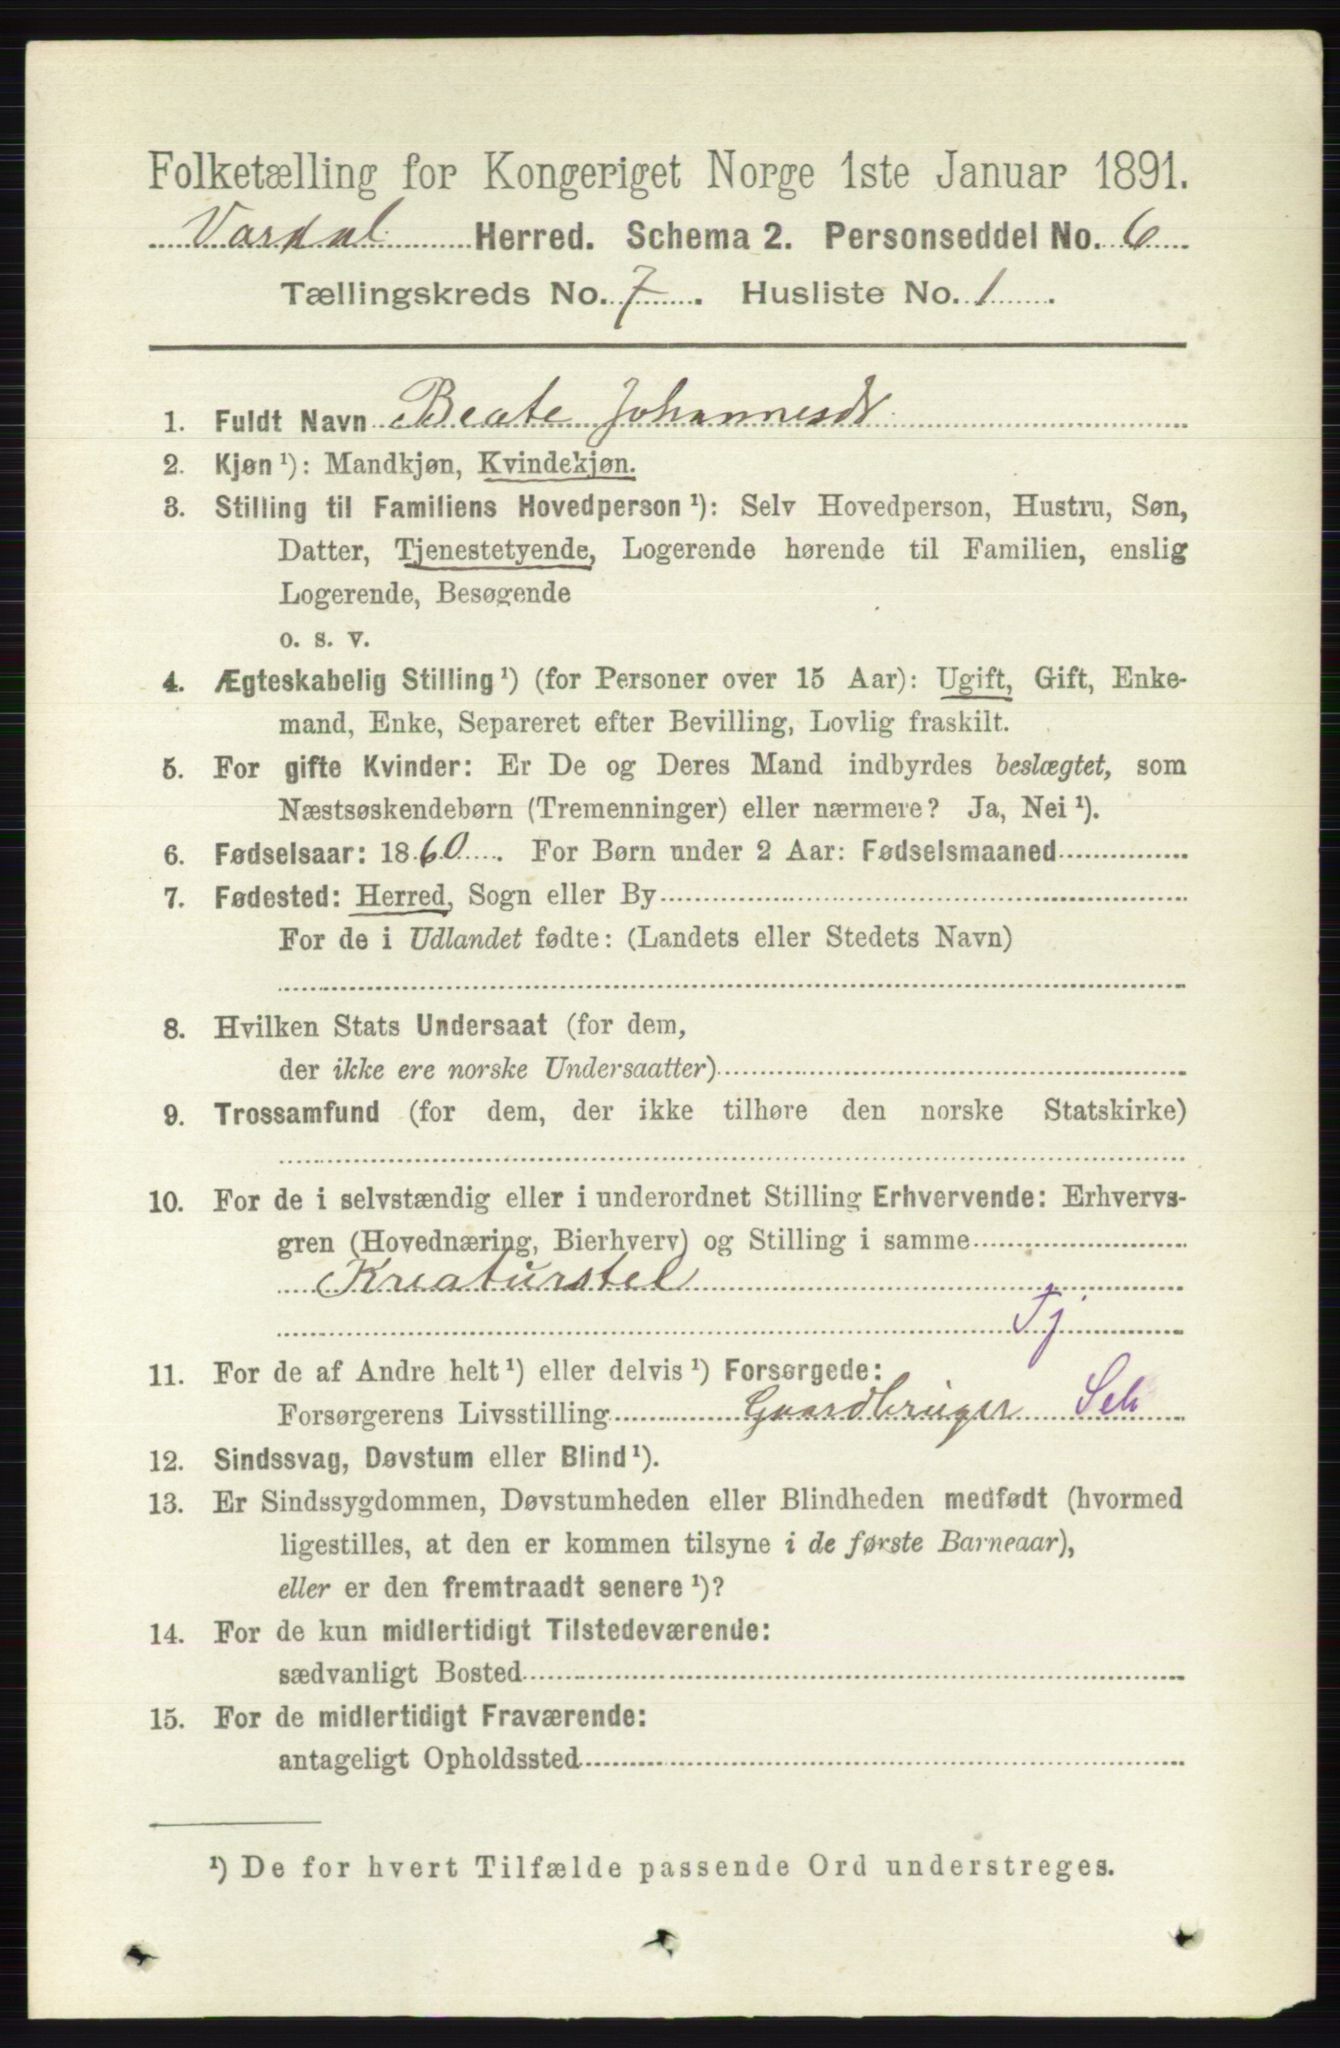 Folketælling for Kongeriget Norge 1ste Januar 1891.
Vardal Herred. Schema 2. Personseddel No. 6
Tællingskreds No. 7. Husliste No. 1.
1. Fuldt Navn Beate Johannesdt
2. Kjøn¹): Mandkjøn, Kvindekjøn.
3. Stilling til Familiens Hovedperson¹): Selv Hovedperson, Hustru, Søn,
Datter, Tjenestetyende, Logerende hørende til Familien, enslig
Logerende, Besøgende
o. s. v.
4. Ægteskabelig Stilling¹) (for Personer over 15 Aar): Ugift, Gift, Enke-
mand, Enke, Separeret efter Bevilling, Lovlig fraskilt.
5. For gifte Kvinder: Er De og Deres Mand indbyrdes beslægtet, som
Næstsøskendebørn (Tremenninger) eller nærmere? Ja, Nei¹).
6. Fødselsaar: 1860. For Børn under 2 Aar: Fødselsmaaned
7. Fødested: Herred, Sogn eller By
For de i Udlandet fødte: (Landets eller Stedets Navn)
8. Hvilken Stats Undersaat (for dem,
der ikke ere norske Undersaatter)
9. Trossamfund (for dem, der ikke tilhøre den norske Statskirke)
10. For de i selvstændig eller i underordnet Stilling Erhvervende: Erhvervs-
gren (Hovednæring, Bierhverv) og Stilling i samme
Kreaturstel
Tj
11. For de af Andre helt¹) eller delvis¹) Forsørgede:
Forsørgerens Livsstilling Gaardbruger Selv
12. Sindssvag, Døvstum eller Blind¹).
13. Er Sindssygdommen, Døvstumheden eller Blindheden medfødt (hvormed
ligestilles, at den er kommen tilsyne i de første Barneaar),
eller er den fremtraadt senere¹)?
14. For de kun midlertidigt Tilstedeværende:
sædvanligt Bosted
15. For de midlertidigt Fraværende:
antageligt Opholdssted
¹) De for hvert Tilfælde passende Ord understreges.